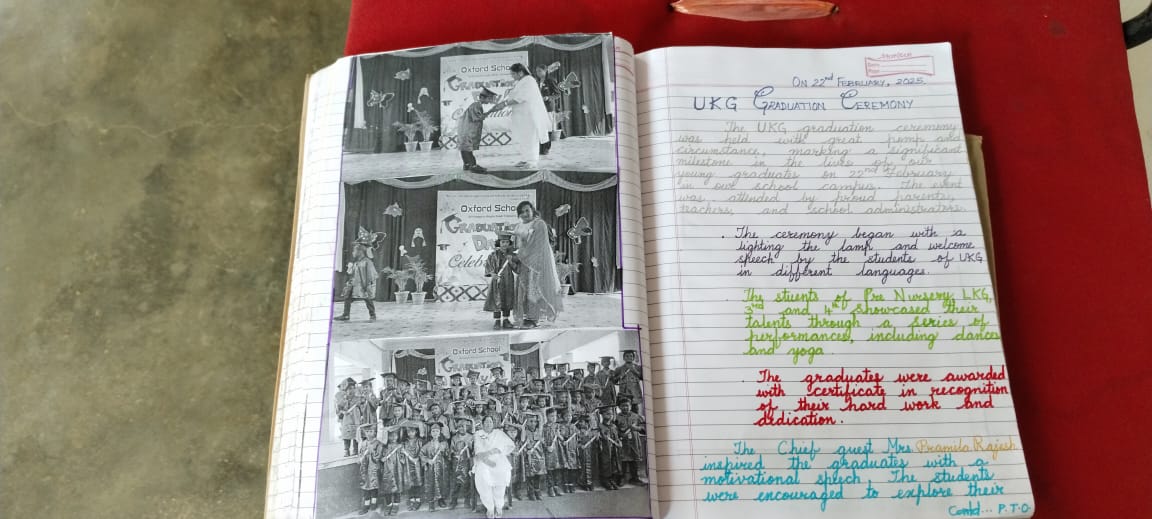 Oxford School
GRADUATION
Celebration
Oxford School
GRADUATION
DAY
Celebration
Oxford School
GRADUATION
ON 22nd FEBRUARY, 2025.
UKG GRADUATION CEREMONY
The UKG graduation ceremony
was held with great pomp and
circumstance, marking a significant
milestone in the lives of our
young graduates on 22nd of February
in our school campus. The event
was attended by proud parents,
teachers, and school administrators.
. The ceremony began with a
lighting the lamp and welcome
speech by the students of UKG
in different languages.
The stuents of Pre Nursery, LKG,
3rd and 4th showcased their
talents through a series of
performances, including dances
and yoga.
. The graduates were awarded
with certificate in recognition
of their hard work and
dedication.
The Chief guest Mrs. Pramila Rajesh
inspired the graduates with a
motivational speech. The students
were encouraged to explore their
Contd... P.T.O.